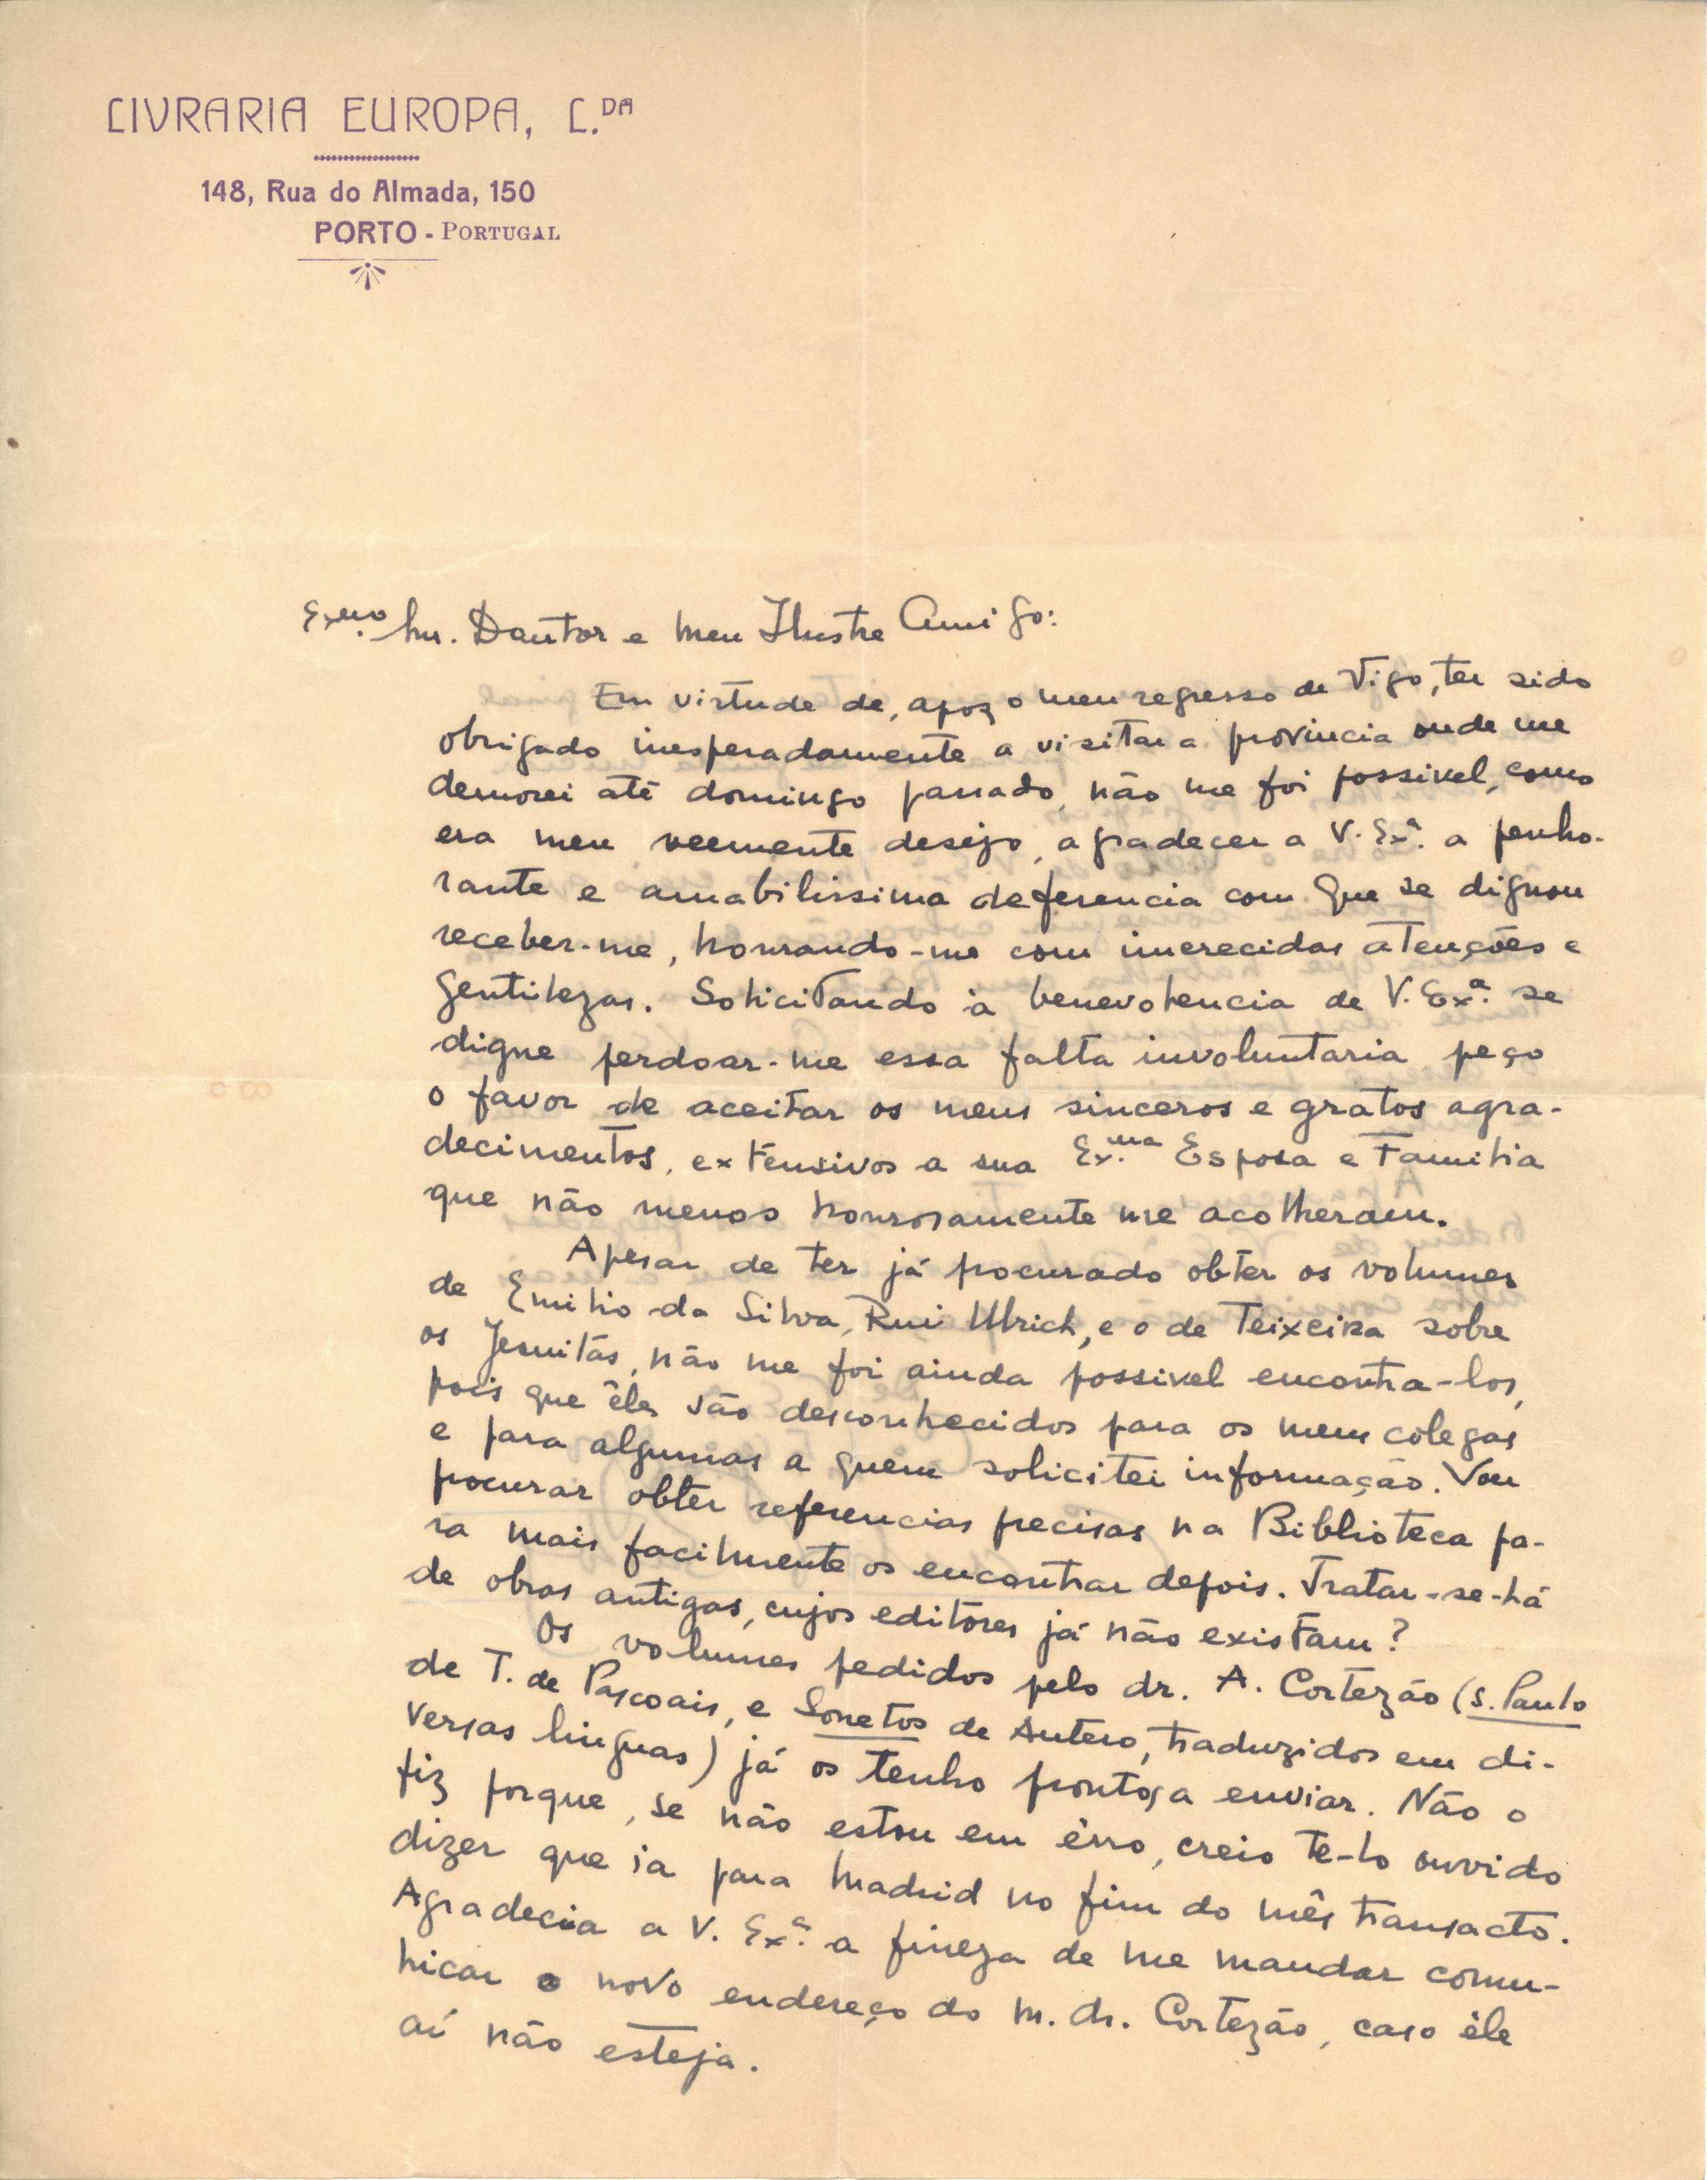 LIVRARIA EUROPA, L.DA
148, Rua do Almada, 150
PORTO - PORTUGAL
Exmo. Snr. Doutor e meu Ilustre Amigo:
Em virtude de, apoz o meu regresso de Vigo, ter sido
obrigado inesperadamente a visitar a provincia onde me
demorei até domingo passado, não me foi possivel, como
era meu veemente desejo, agradecer a V. Exª. a penho-
rante e amabilissima deferencia com que se dignou
receber-me, honrando-me com imerecidas atenções e
gentilezas. Solicitando à benevolencia de V. Exª. se
digne perdoar-me essa falta involuntaria peço
o favor de aceitar os meus sinceros e gratos agra-
decimentos, extensivos a sua Ex.ma Esposa e Familia
que não menos honrosamente me acolheram.
Apesar de ter já procurado obter os volumes
de Emilio da Silva, Rui Ulrich, e o de Teixeira sobre
os Jesuitas, não me foi ainda possivel encontra-los,
pois que êles são desconhecidos para os meus colegas
e para algumas a quem solicitei informação. Vou
procurar obter referencias precisas na Biblioteca pa-
ra mais facilmente os encontrar depois. Tratar-se-há
de obras antigas, cujos editores já não existam?
Os volumes pedidos pelo dr. A. Cortezão (S. Paulo
de T. de Pascoais, e Sonetos de Antero, traduzidos em di-
versas linguas) já os tenho prontos a enviar. Não o
fiz porque, se não estou em êrro, creio te-lo ouvido
dizer que ia para Madrid no fim do mês transacto.
Agradecia a V. Exª. a fineza de me mandar comu-
nicar o novo endereço do m. dr. Cortezão, caso êle
aí não esteja.